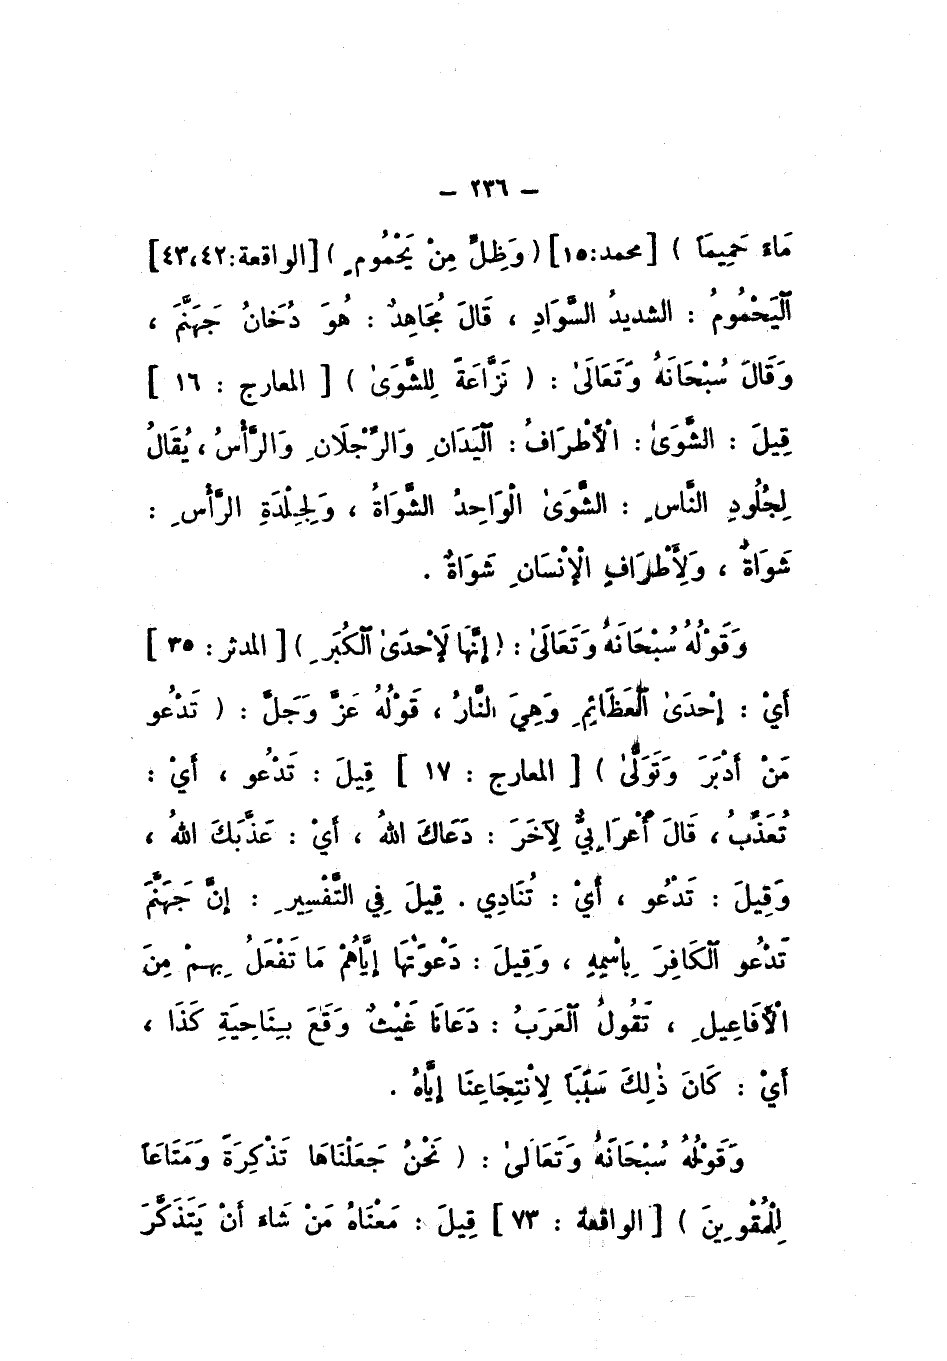 – ٢٣٦ –
مَاءً حَمِيمَاً ) [محمد:١٥] ( وَظِلٍّ مِنْ يَحْمُومٍ ) [الواقعة:٤٣،٤٢]
ٱلْيَحْمُومُ : الشديدُ السَّوَادِ ، قَالَ مُجَاهِدٌ : هُوَ دُخَانُ جَهَنَّمَ ،
وَقَالَ سُبْحَانَهُ وَتَعَالَىٰ : ( نَزَّاعَةً لِلشَّوَىٰ ) [ المعارج : ١٦ ]
قِيلَ : الشَّوَىٰ : الْأَطْرَافُ : ٱلْيَدَانِ وَالرِّجْلَانِ وَالرَّأْسُ ، يُقَالُ
لِجُلُودِ النَّاسِ : الشَّوَىٰ الْوَاحِدُ الشَّوَاةُ ، وَلِجِلْدَةِ الرَّأْسِ :
شَوَاةٌ ، وَلِأَطْرَافِ الْإِنْسَانِ شَوَاةٌ .
وَقَوْلُهُ سُبْحَانَهُ وَتَعَالَىٰ : ( إِنَّهَا لَإِحْدَىٰ ٱلْكُبَرِ ) [ المدثر : ٣٥ ]
أَيْ : إِحْدَىٰ ٱلْعَظَائِمِ وَهِيَ النَّارُ ، قَوْلُهُ عَزَّ وَجَلَّ : ( تَدْعُو
مَنْ أَدْبَرَ وَتَوَلَّىٰ ) [ المعارج : ١٧ ] قِيلَ : تَدْعُو ، أَيْ :
تُعَذِّبُ ، قَالَ أَعْرَابِيٌّ لِآخَرَ : دَعَاكَ اللهُ ، أَيْ : عَذَّبَكَ اللهُ ،
وَقِيلَ : تَدْعُو ، أَيْ : تُنَادِي . قِيلَ فِي التَّفْسِيرِ : إِنَّ جَهَنَّمَ
تَدْعُو ٱلْكَافِرَ بِاسْمِهِ ، وَقِيلَ : دَعْوَتُهَا إِيَّاهُمْ مَا تَفْعَلُ بِهِمْ مِنَ
الْأَفَاعِيلِ ، تَقُولُ ٱلْعَرَبُ : دَعَانَا غَيْثٌ وَقَعَ بِنَاحِيَةِ كَذَا ،
أَيْ : كَانَ ذٰلِكَ سَبَبَاً لِانْتِجَاعِنَا إِيَّاهُ .
وَقَوْلُهُ سُبْحَانَهُ وَتَعَالىٰ : ( نَحْنُ جَعَلْنَاهَا تَذْكِرَةً وَمَتَاعَاً
لِلْمُقْوِينَ ) [ الواقعة : ٧٣ ] قِيلَ : مَعْنَاهُ مَنْ شَاءَ أَنْ يَتَذَكَّرَ